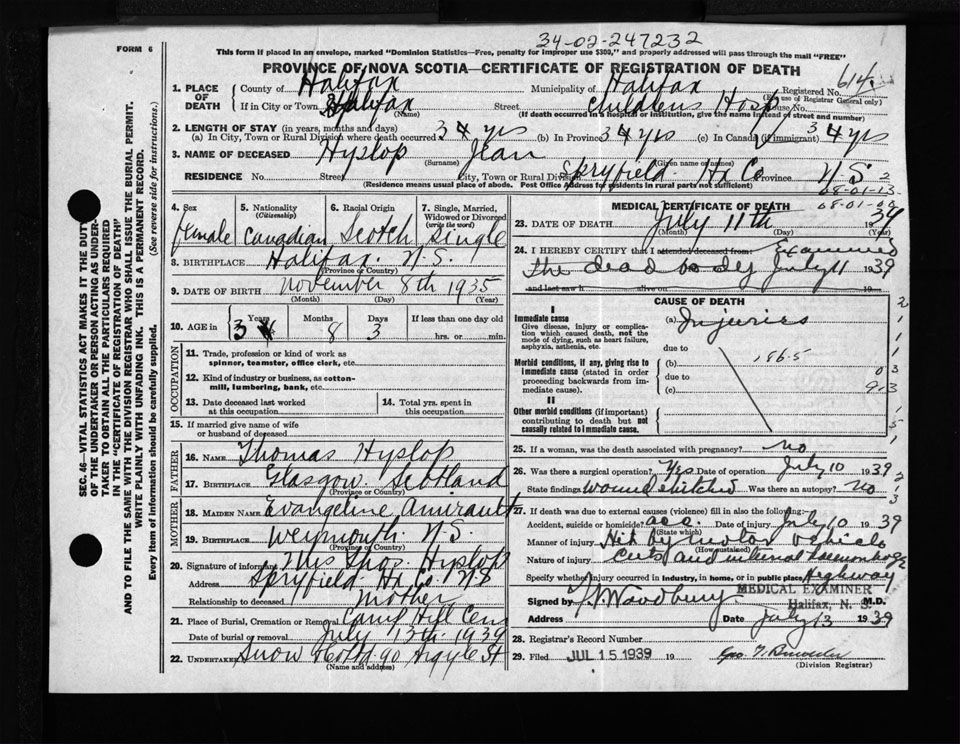 34-02-247232
FORM 6
This form if placed in an envelope, marked "Dominion Statistics—Free, penalty for improper use $300," and properly addressed will pass through the mail "FREE"
PROVINCE OF NOVA SCOTIA—CERTIFICATE OF REGISTRATION OF DEATH
SEC. 46—VITAL STATISTICS ACT MAKES IT THE DUTY
OF THE UNDERTAKER OR PERSON ACTING AS UNDER-
TAKER TO OBTAIN ALL THE PARTICULARS REQUIRED
IN THE "CERTIFICATE OF REGISTRATION OF DEATH"
AND TO FILE THE SAME WITH THE DIVISION REGISTRAR WHO SHALL ISSUE THE BURIAL PERMIT.
WRITE PLAINLY WITH UNFADING INK. THIS IS A PERMANENT RECORD.
Every item of information should be carefully supplied. (See reverse side for instructions.)
1. PLACE OF DEATH
County of Halifax Municipality of Halifax Registered No. 614
(For use of Registrar General only)
If in City or Town Halifax Street Childrens Hosp House No.
(Name) (If death occurred in a hospital or institution, give the name instead of street and number)
2. LENGTH OF STAY (in years, months and days)
(a) In City, Town or Rural Division where death occurred 3 yrs (b) In Province 3 yrs (c) In Canada (if immigrant) 3 yrs
3. NAME OF DECEASED Hyslop Jean
(Surname) (Given name or names)
RESIDENCE No. Street City, Town or Rural Division Spryfield. Hx Co Province N.S. 2
(Residence means usual place of abode. Post Office Address for residents in rural parts not sufficient)
08-01-13
08-01-00
4. Sex female
5. Nationality (Citizenship) Canadian
6. Racial Origin Scotch
7. Single, Married, Widowed or Divorced (write the word) Single
8. BIRTHPLACE Halifax. N.S.
(Province or Country)
9. DATE OF BIRTH November 8th 1935
(Month) (Day) (Year)
10. AGE in Years 3 Months 8 Days 3 If less than one day old
hrs. or min.
OCCUPATION
11. Trade, profession or kind of work as spinner, teamster, office clerk, etc.
12. Kind of industry or business, as cotton-mill, lumbering, bank, etc.
13. Date deceased last worked at this occupation
14. Total yrs. spent in this occupation
15. If married give name of wife or husband of deceased
FATHER
16. NAME Thomas Hyslop
17. BIRTHPLACE Glasgow. Scotland
(Province or Country)
MOTHER
18. MAIDEN NAME Evangeline Amirault
19. BIRTHPLACE Weymouth N.S.
(Province or Country)
20. Signature of informant Mrs Thos. Hyslop
Address Spryfield Hx Co. NS
Relationship to deceased Mother
21. Place of Burial, Cremation or Removal Camp Hill Cem
Date of burial or removal July 12th. 1939
22. Undertaker Snow & Co Ltd 90 Argyle St
(Name and address)
MEDICAL CERTIFICATE OF DEATH
23. DATE OF DEATH July 11th 1939
(Month) (Day) (Year)
24. I HEREBY CERTIFY that I attended deceased from: Examined
the dead body July 11 1939
and last saw h alive on 19
CAUSE OF DEATH
I
Immediate cause
Give disease, injury or complication which caused death, not the mode of dying, such as heart failure, asphyxia, asthenia, etc.
(a) Injuries
due to
Morbid conditions, if any, giving rise to immediate cause (stated in order proceeding backwards from immediate cause).
(b) 186-5
due to
(c)
II
Other morbid conditions (if important) contributing to death but not causally related to immediate cause.
25. If a woman, was the death associated with pregnancy? no
26. Was there a surgical operation? Yes. Date of operation July 10 1939
State findings wound stitched Was there an autopsy? no
27. If death was due to external causes (violence) fill in also the following:—
Accident, suicide or homicide? acc. Date of injury July 10 1939
(State which)
Manner of injury Hit by motor vehicle
(How sustained)
Nature of injury Cuts and internal haemorrhage
Specify whether injury occurred in industry, in home, or in public place Highway
MEDICAL EXAMINER
Signed by Woodbury M.D.
Halifax, N. S.
Address Date July 13 1939
28. Registrar's Record Number
29. Filed JUL 15 1939 19
(Division Registrar)